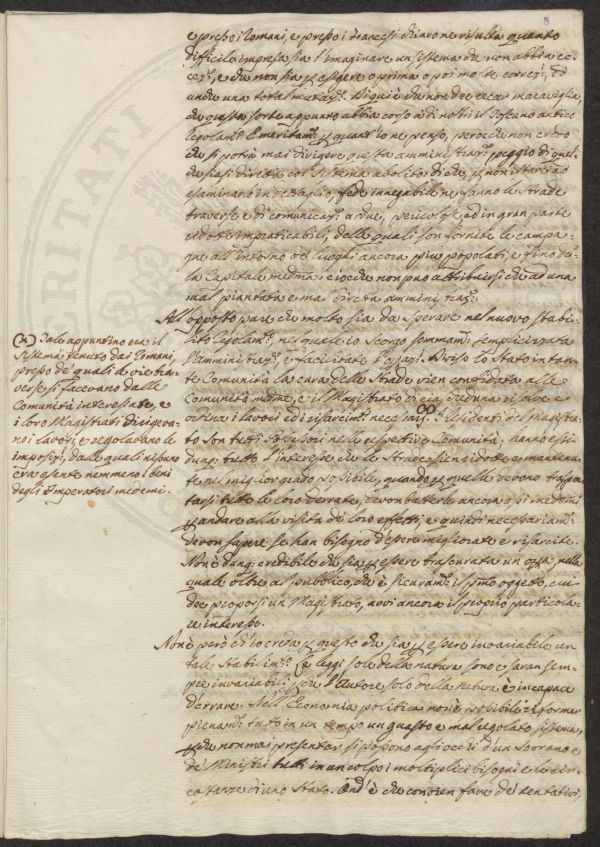 8
e presso i Romani, e presso i Francesi chiaro ne risulta quanto
difficile impresa sia l'imaginare un sistema che non abbia ec-
cez.e, e che non sia p essere o prima o poi mo te corez.e, ed
anche una total mutaz.e. Di qui è che non dee recar maraviglia,
che questa sorte appunto abbia corso a dì nostri il Toscano antico
regolam.to. E meritam.te p quanto io ne penso, perocche non credo
che si potrà mai dirigere questa amministraz.e peggio di quel
che siasi diretta col sistema abolito; di che, p non istare ad
esaminarlo in dettaglio, fede innegabile ne fanno le strade
traverse e di comunicaz.e ardue, pericolose, ed in gran parte
ridotte impraticabili, delle quali son fornite le campa-
gne all'intorno de' luoghi ancora più popolati, e fino del-
la Capitale medma: ciocche non può attribuirsi che ad una
mal piantata e mal diretta amministraz.e.
All'opposto pare che molto sia da sperare nel nuovo stabi-
lito regolam.to, nel quale io scorgo sommam.te semplicizzata
l'amministraz.e, e facilitato l'
Diviso lo Stato in tan-
te Comunità la cura delle Strade vien confidata alle
Comunità medme, e il Magistrato di ciascheduna risolve e
ordina i lavori ed i risarcim.ti necessarj. I Residenti del Magistra-
to son tutti Possessori nelle respettive Comunità, hanno essi
dunq: tutto l'interesse che le Strade sien ridotte e mantenu-
te nel miglior grado possibile, quando p quelle devono traspor-
tarsi tutte le loro derrate, devon batterle ancora essi medmi
p andare alla visita de' loro effetti, e quindi necessariam.te
devon sapere se han bisogno d'essere migliorate e risarcite.
Non è dunq: credibile che sia p essere trascurata un opera nella
quale oltre al pubblico, che è sicuram.te il primo oggetto, cui
dee proporsi un Magistrato, avvi ancora il proprio particola-
re interesse.
Non è però ch'io creda p questo che sia p essere invariabile un
tale stabilim.to. Le leggi sole della natura sono e saran sem-
pre invariabili, perche l'Autore solo della natura è incapace
d'errare. Nell'Economia politica non è possibile riformar
pienam.te tutto in un tempo un guasto e mal regolato sistema,
p che non mai presentar si possono agli occhi d'un Sovrano e
de' Ministri tutti in un colpo i moltiplici bisogni e le cir-
costanze di uno Stato. Ond'è che convien fare de' tentativi,
Tale appuntino era il
sistema tenuto dai Romani,
presso de' quali le vie tra-
verse si facevano dalle
Comunità interessate, e
i loro Magistrati dirigeva-
no i lavori, e regolavano le
imposizi, dalle quali nissuno
era esente nemmeno i beni
degli Imperatori medemi.